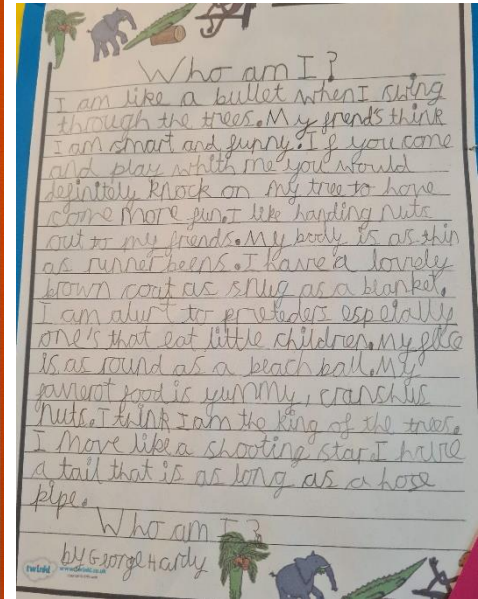 Who am I?
I am like a bullet when I swing
through the trees. My frends think
I am smart and funny. If you come
and play whith me you would
definitely knock on my tree to have
some more fun. I like handing nuts
out to my friends. My body is as thin
as runner beens. I have a lovely
brown cort as snug as a blanket.
I am alurt to preteders espeially
one's that eat little children. My face
is as round as a beach ball. My
faverot food is yummy, cranshus
nuts. I think I am the king of the trees.
I move like a shooting star. I have
a tail that is as long as a hose
pipe.
Who am I?
by George Hardy
twinkl